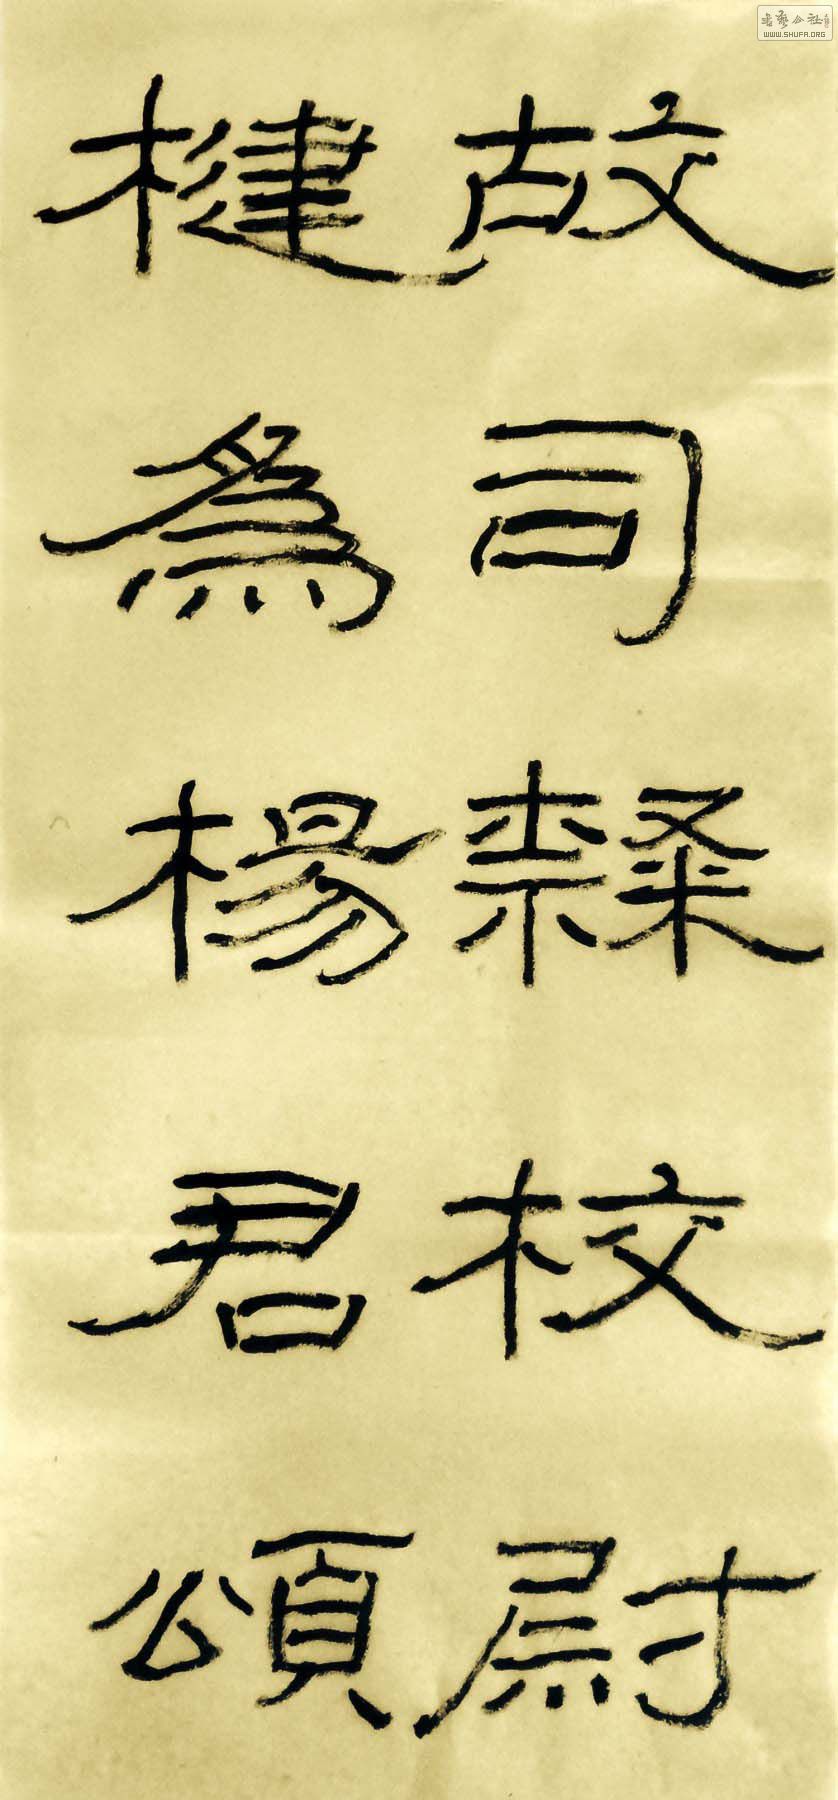 故司隸校尉
楗為楊君頌
書藝公社
WWW.SHUFA.ORG